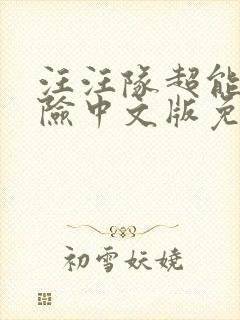 汪汪队超能
险中文版免
初雪妖娆